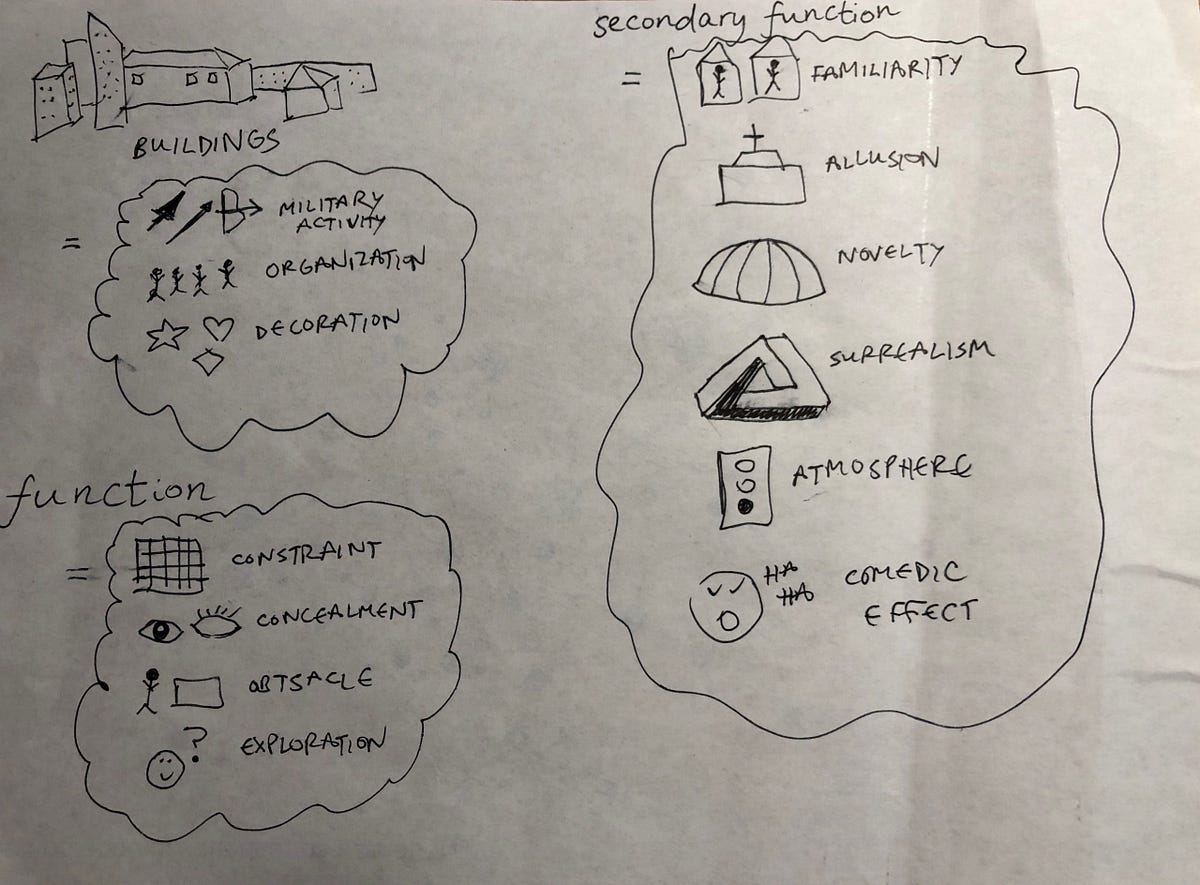 BUILDINGS
= MILITARY
ACTIVITY
ORGANIZATION
DECORATION
function
= CONSTRAINT
CONCEALMENT
OBTSACLE
? EXPLORATION
secondary function
= FAMILIARITY
ALLUSION
NOVELTY
SURREALISM
ATMOSPHERE
HA
HA
COMEDIC
EFFECT